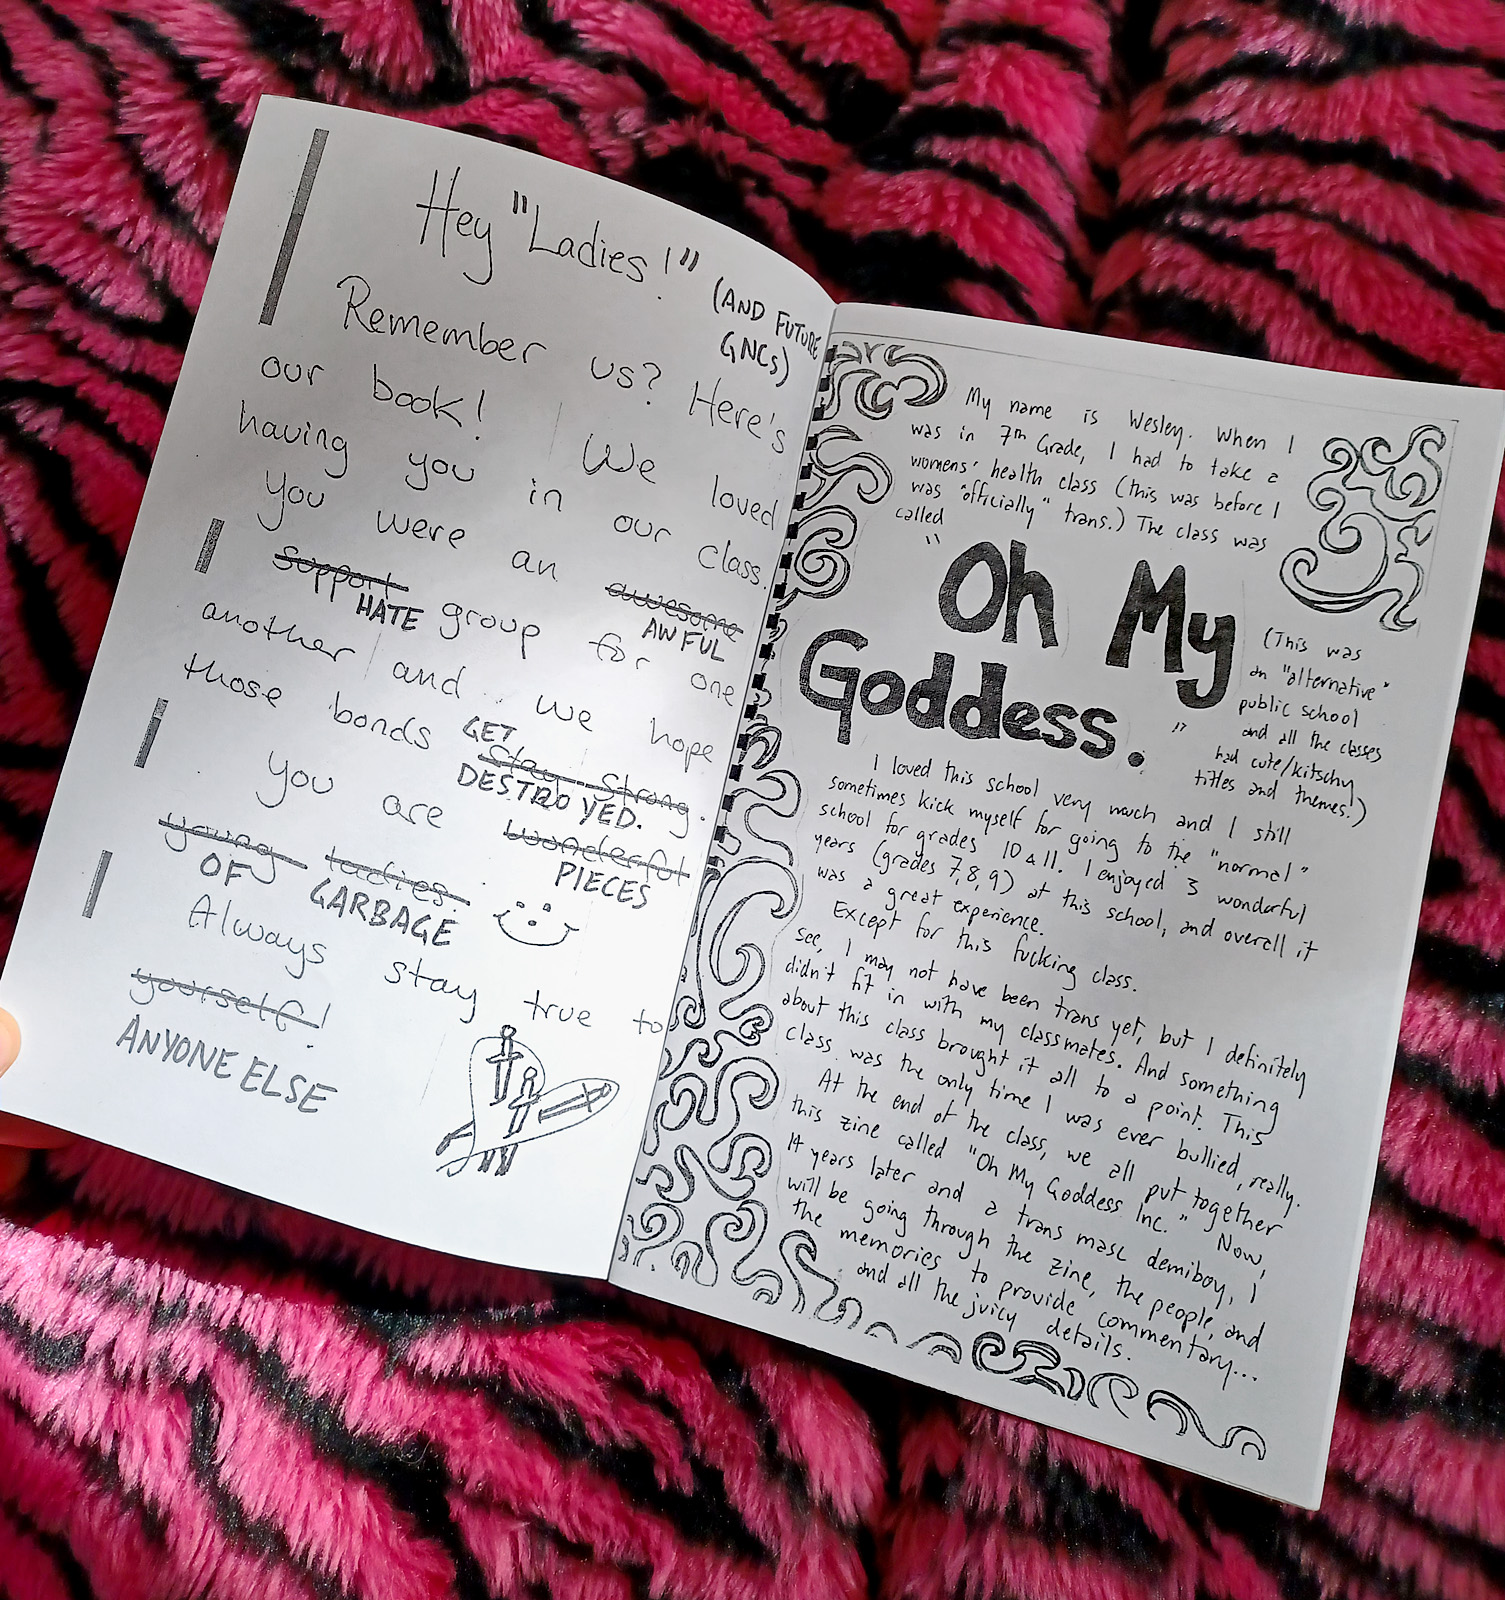 Hey "Ladies!"
(AND FUTURE
GNCs)
Remember us? Here's
our book! We loved
having you in our class.
You were an awesome
AWFUL
support group for one
HATE
another and we hope
those bonds stay strong.
GET
DESTROYED.
You are wonderful
PIECES
young ladies.
OF GARBAGE
Always stay true to
yourself!
ANYONE ELSE
My name is Wesley. When I
was in 7th Grade, I had to take a
womens' health class (this was before I
was "officially" trans.) The class was
called
"Oh My
Goddess."
(This was
an "alternative"
public school
and all the classes
had cute/kitschy
titles and themes.)
I loved this school very much and I still
sometimes kick myself for going to the "normal"
school for grades 10 & 11. I enjoyed 3 wonderful
years (grades 7,8,9) at this school, and overall it
was a great experience.
Except for this fucking class.
see, I may not have been trans yet, but I definitely
didn't fit in with my classmates. And something
about this class brought it all to a point. This
class was the only time I was ever bullied, really.
At the end of the class, we all put together
this zine called "Oh My Goddess Inc." Now,
14 years later and a trans masc demiboy, I
will be going through the zine, the people, and
the memories to provide commentary...
and all the juicy details.